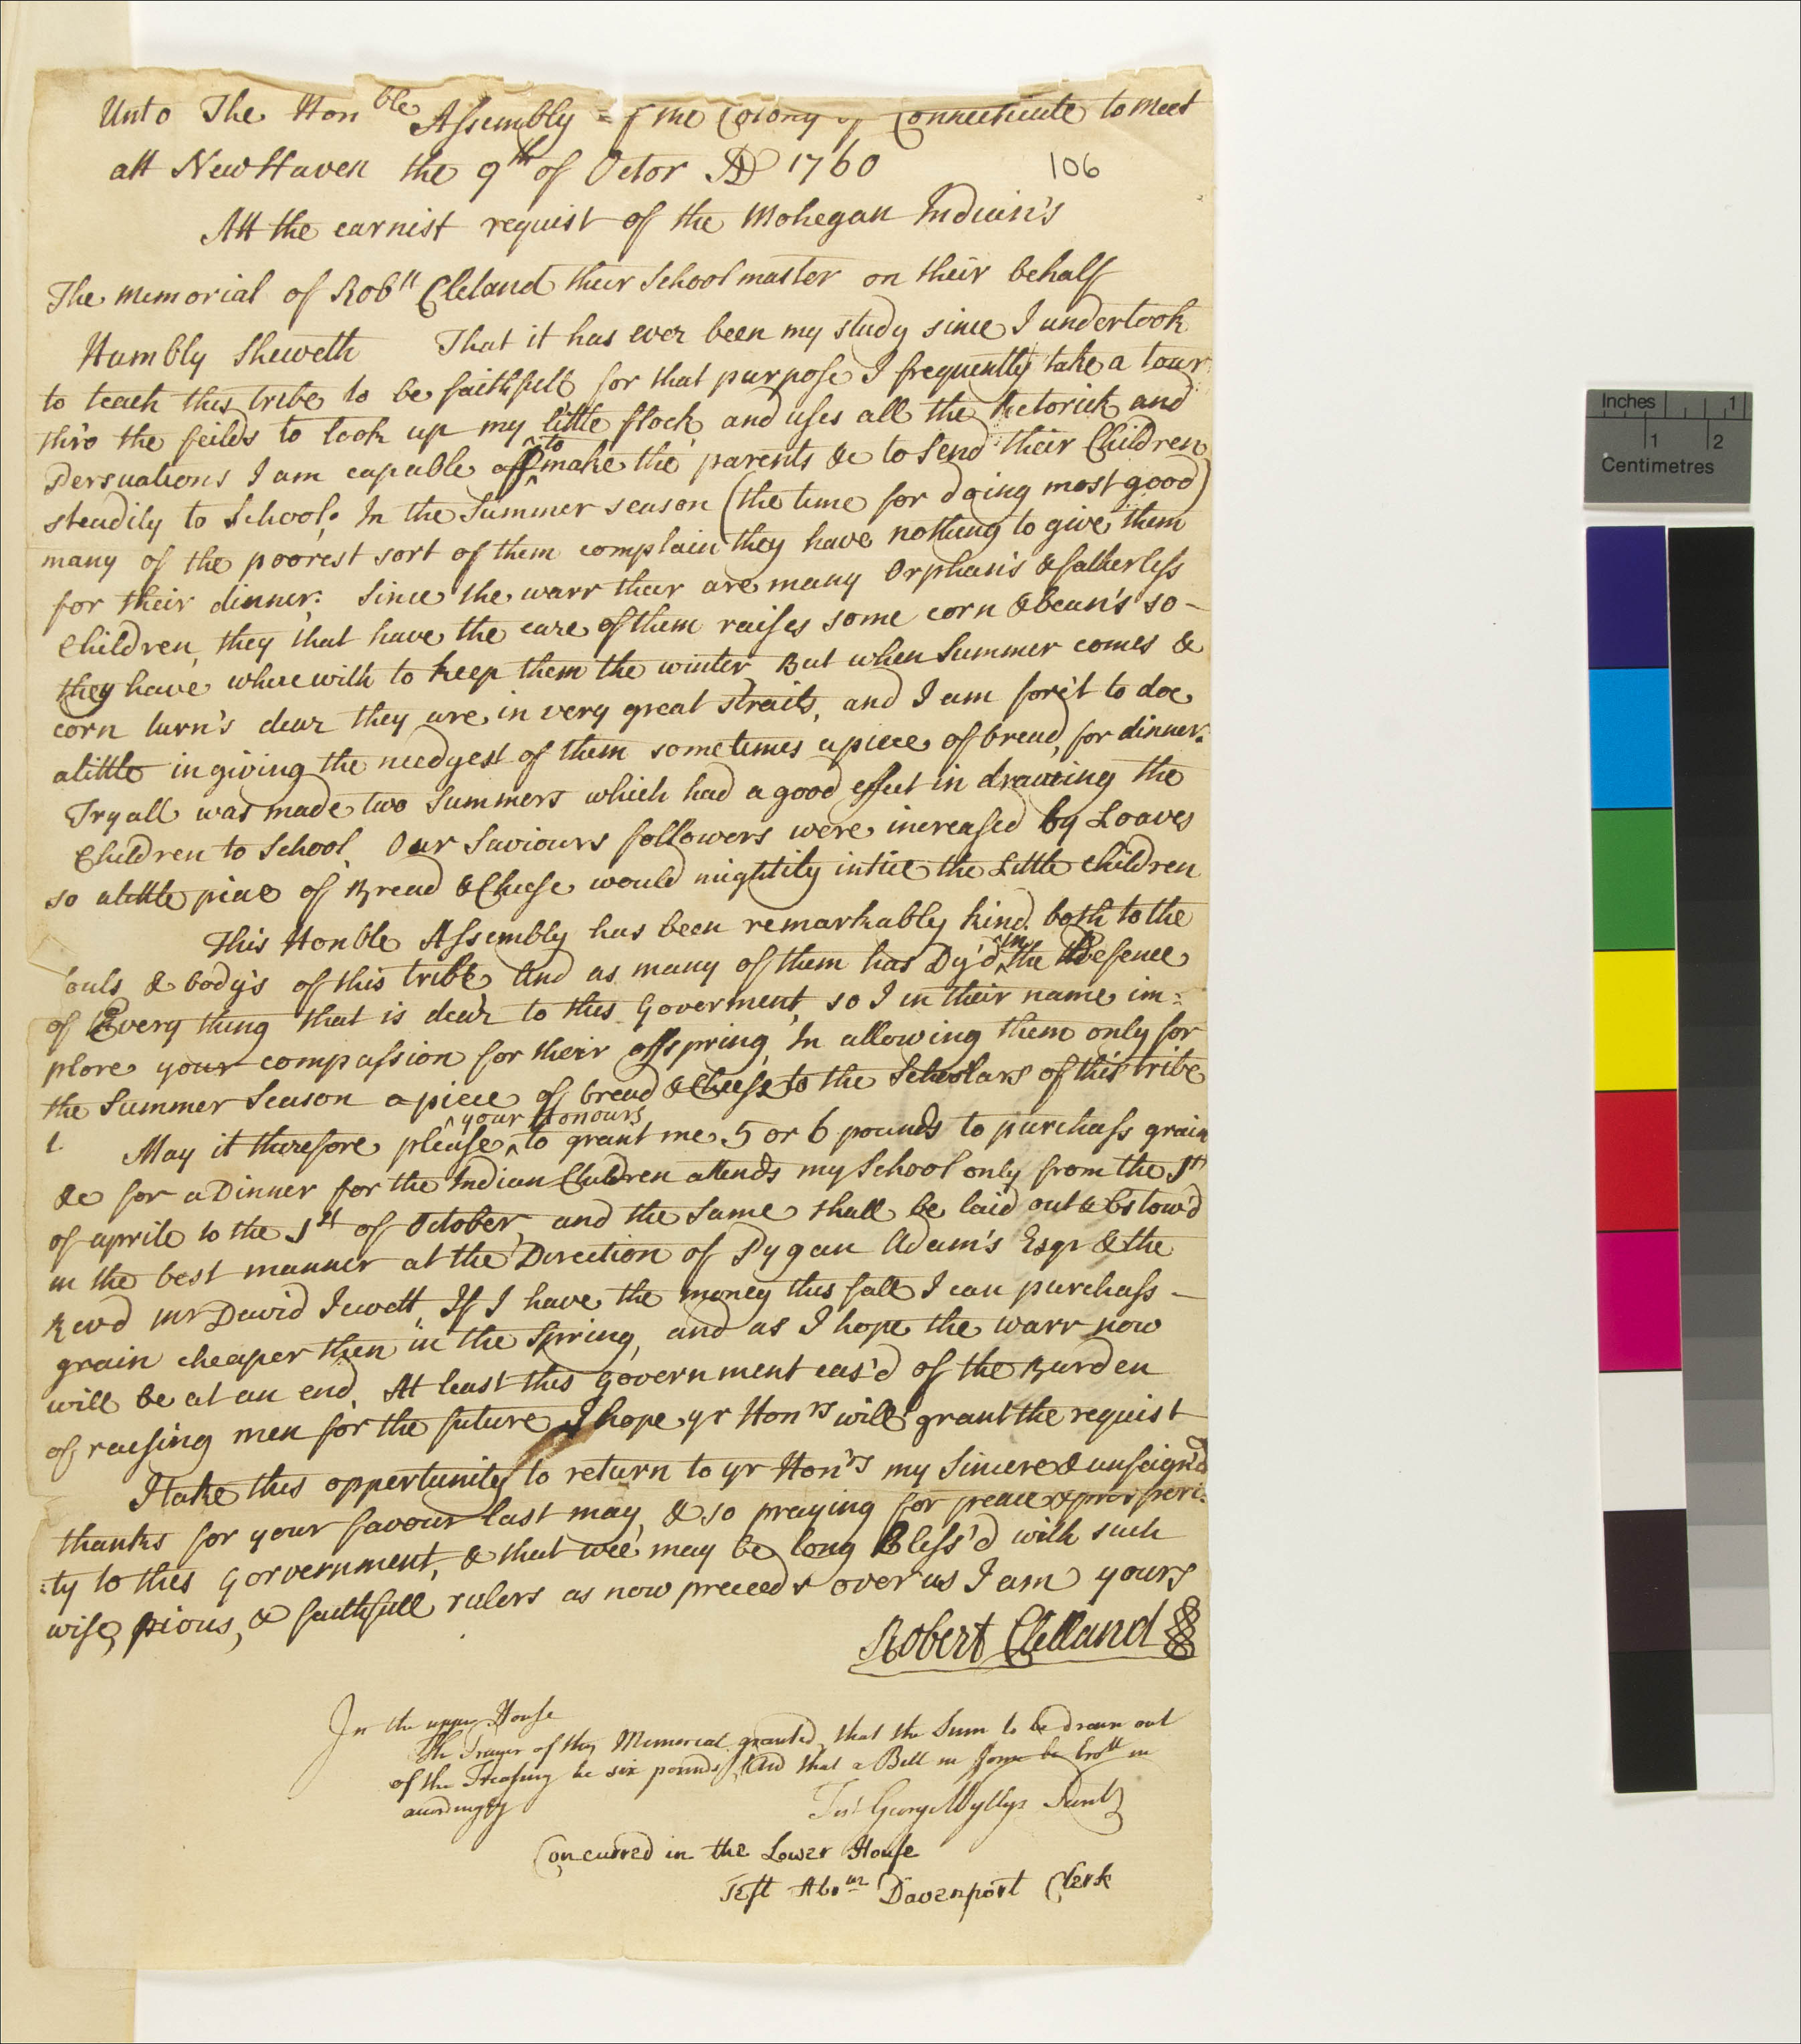 Unto The Honble Assembly of the Colony of Connecticute to meet
att New Haven the 9th of Octor AD 1760
106
Att the earnist requist of the Mohegan Indian's
The memorial of Robtt Cleland their School master on their behalf
Humbly Sheweth That it has ever been my study since I undertook
to teach this tribe to be faithfull for that purpose I frequently take a tour
thro the feilds to look up my little flock, and uses all the Retorick and
Persuations I am capable off to make the parents &c to Send their Children
steadily to School; In the Summer season (the time for doing most good)
many of the poorest sort of them complain they have nothing to give them
for their dinner: Since the warr their are many Orphan's & fatherless
Children, they that have the care of them raises some corn & bean's so-
they have wherewith to keep them the winter, But when Summer comes &
corn turn's dear they are in very great straits, and I am forc't to doe
alittle in giving the needyest of them sometimes apiece of bread, for dinner:
Tryall was made two Summers which had a good effect in drawing the
Children to School, Our Saviours followers were increased by Loaves
so alittle piece of Bread & Cheese would mightily intice the Little children
This Honble Assembly has been remarkably kind both to the
souls & body's of this tribe And as many of them has Dy'd in the Defence
of Every thing that is dear to this Goverment, so I in their name im:
plore your compassion for their offspring, In allowing them only for
the Summer Season apiece of bread & Cheese to the Scholars of this tribe
1. May it therefore please your Honours to grant me 5 or 6 pounds to purchass grain
&c for a Dinner for the Indian Children attends my School only from the 1st
of aprile to the 1st of October, and the Same shall be laid out & bstow'd
in the best manner at the Direction of Pygan Adam's Esqr & the
Revd mr David Jewett, If I have the money this fall I can purchass -
grain cheaper then in the Spring, and as I hope the warr now
will be at an end, At least this government eas'd of the Burden
of raising men for the future, I hope yr Honrs will grant the requist
I take this oppertunity to return to yr Honrs my Sincere & unfeign'd
thanks for your favour last may, & so praying for peace & prosperi:
:ty to this Gorvernment, & that wee may be long Bless'd with such
wise, pious, & faithfull rulers as now preceeds over us I am yours
Robert Clelland
In the upper House
The Prayer of this Memorial granted, that the Sum to be drawn out
of the Treasury be six pounds, And that a Bill in form be brott in
accordingly
Test George Wyllys Secret
Concurred in the Lower House
Test Abrm Davenport Clerk
Inches 1
1 2
Centimetres